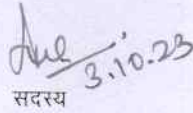 3.10.23
सदस्य